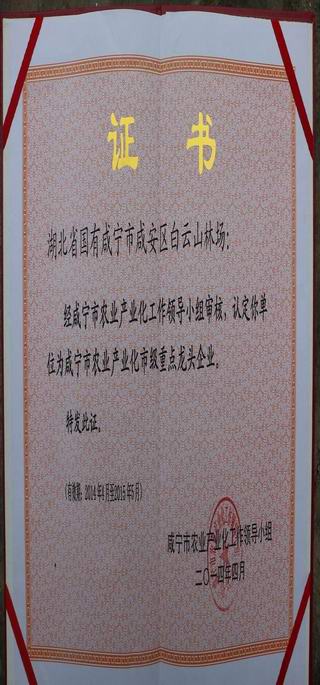 证书
湖北省国有咸宁市咸安区白云山林场：
经咸宁市农业产业化工作领导小组审核，认定你单
位为咸宁市农业产业化市级重点龙头企业。
特发此证。
（有效期：2014年4月至2015年5月）
咸宁市农业产业化工作领导小组
二〇一四年四月